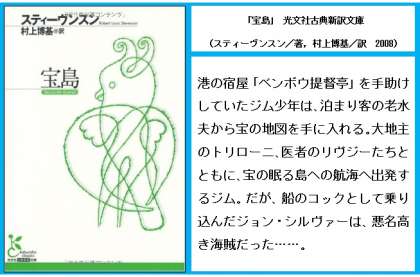 スティーヴンスン
村上博基●訳
宝島
「宝島」 光文社古典新訳文庫
(スティーヴンスン/著, 村上博基/訳 2008)
港の宿屋「ベンボウ提督亭」を手助け
していたジム少年は、泊まり客の老水
夫から宝の地図を手に入れる。大地主
のトリローニ、医者のリヴジーたちと
ともに、宝の眠る島への航海へ出発す
るジム。だが、船のコックとして乗り
込んだジョン・シルヴァーは、悪名高
き海賊だった……。